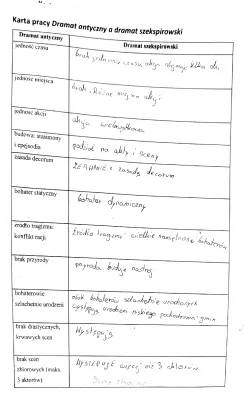 Karta pracy Dramat antyczny a dramat szekspirowski
Dramat antyczny
Dramat szekspirowski
jedność czasu
brak jedności czasu, akcja obejmuje kilka dni
jedność miejsca
brak. Różne miejsca akcji
jedność akcji
akcja wielowątkowa
budowa: stasimony i epejsodia
podział na akty i sceny
zasada decorum
ZERWANIE z zasadą decorum
bohater statyczny
bohater dynamiczny
źródło tragizmu konflikt racji
źródło tragizmu wielkie namiętności bohaterów
brak przyrody
przyroda buduje nastrój
bohaterowie szlachetnie urodzeni
obok bohaterów szlachetnie urodzonych
występują urodzeni niskiego pochodzenia
brak drastycznych, krwawych scen
Występują
brak scen zbiorowych (maks. 3 aktorów)
WYSTĘPUJE więcej niż 3 aktorów